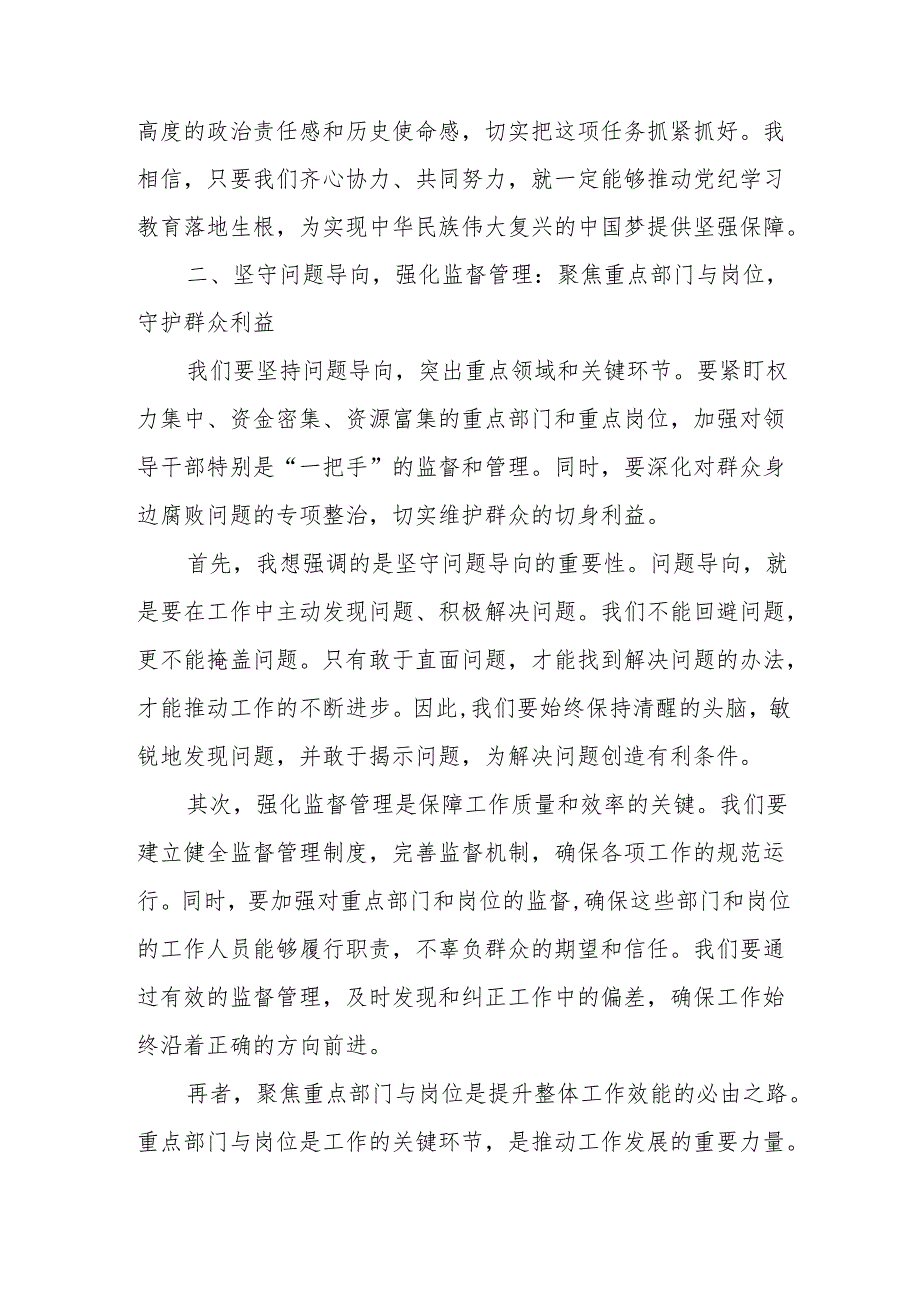 高度的政治责任感和历史使命感，切实把这项任务抓紧抓好。我
相信，只要我们齐心协力、共同努力，就一定能够推动党纪学习
教育落地生根，为实现中华民族伟大复兴的中国梦提供坚强保障。
二、坚守问题导向，强化监督管理：聚焦重点部门与岗位，
守护群众利益
我们要坚持问题导向，突出重点领域和关键环节。要紧盯权
力集中、资金密集、资源富集的重点部门和重点岗位，加强对领
导干部特别是“一把手”的监督和管理。同时，要深化对群众身
边腐败问题的专项整治，切实维护群众的切身利益。
首先，我想强调的是坚守问题导向的重要性。问题导向，就
是要在工作中主动发现问题、积极解决问题。我们不能回避问题，
更不能掩盖问题。只有敢于直面问题，才能找到解决问题的办法，
才能推动工作的不断进步。因此,我们要始终保持清醒的头脑，敏
锐地发现问题，并敢于揭示问题，为解决问题创造有利条件。
其次，强化监督管理是保障工作质量和效率的关键。我们要
建立健全监督管理制度，完善监督机制，确保各项工作的规范运
行。同时，要加强对重点部门和岗位的监督,确保这些部门和岗位
的工作人员能够履行职责，不辜负群众的期望和信任。我们要通
过有效的监督管理，及时发现和纠正工作中的偏差，确保工作始
终沿着正确的方向前进。
再者，聚焦重点部门与岗位是提升整体工作效能的必由之路。
重点部门与岗位是工作的关键环节，是推动工作发展的重要力量。